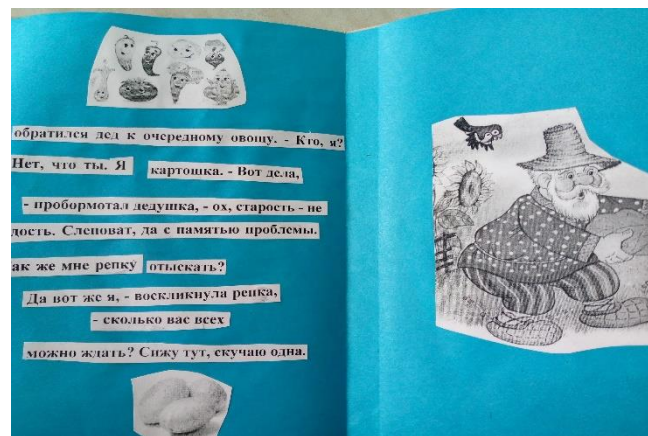 обратился дед к очередному овощу. - Кто, я?
Нет, что ты. Я картошка. - Вот дела,
- пробормотал дедушка, - ох, старость - не
дость. Слеповат, да с памятью проблемы.
ак же мне репку отыскать?
Да вот же я, - воскликнула репка,
- сколько вас всех
можно ждать? Сижу тут, скучаю одна.